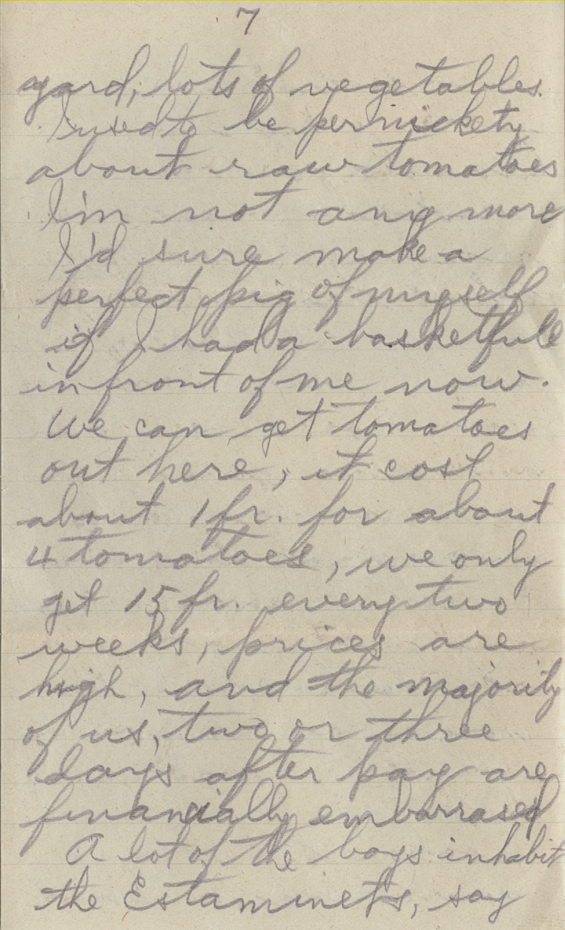 7
yard, lots of vegetables.
I used to be pernickety
about raw tomatoes
I'm not any more
I'd sure make a
perfect pig of myself
if I had a basketfull
in front of me now.
We can get tomatoes
out here, it cost
about 1 fr. for about
4 tomatoes, we only
get 15 fr. every two
weeks, prices are
high, and the majority
of us, two or three
days after pay are
financially embarrased
A lot of the boys inhabit
the Estaminets, say